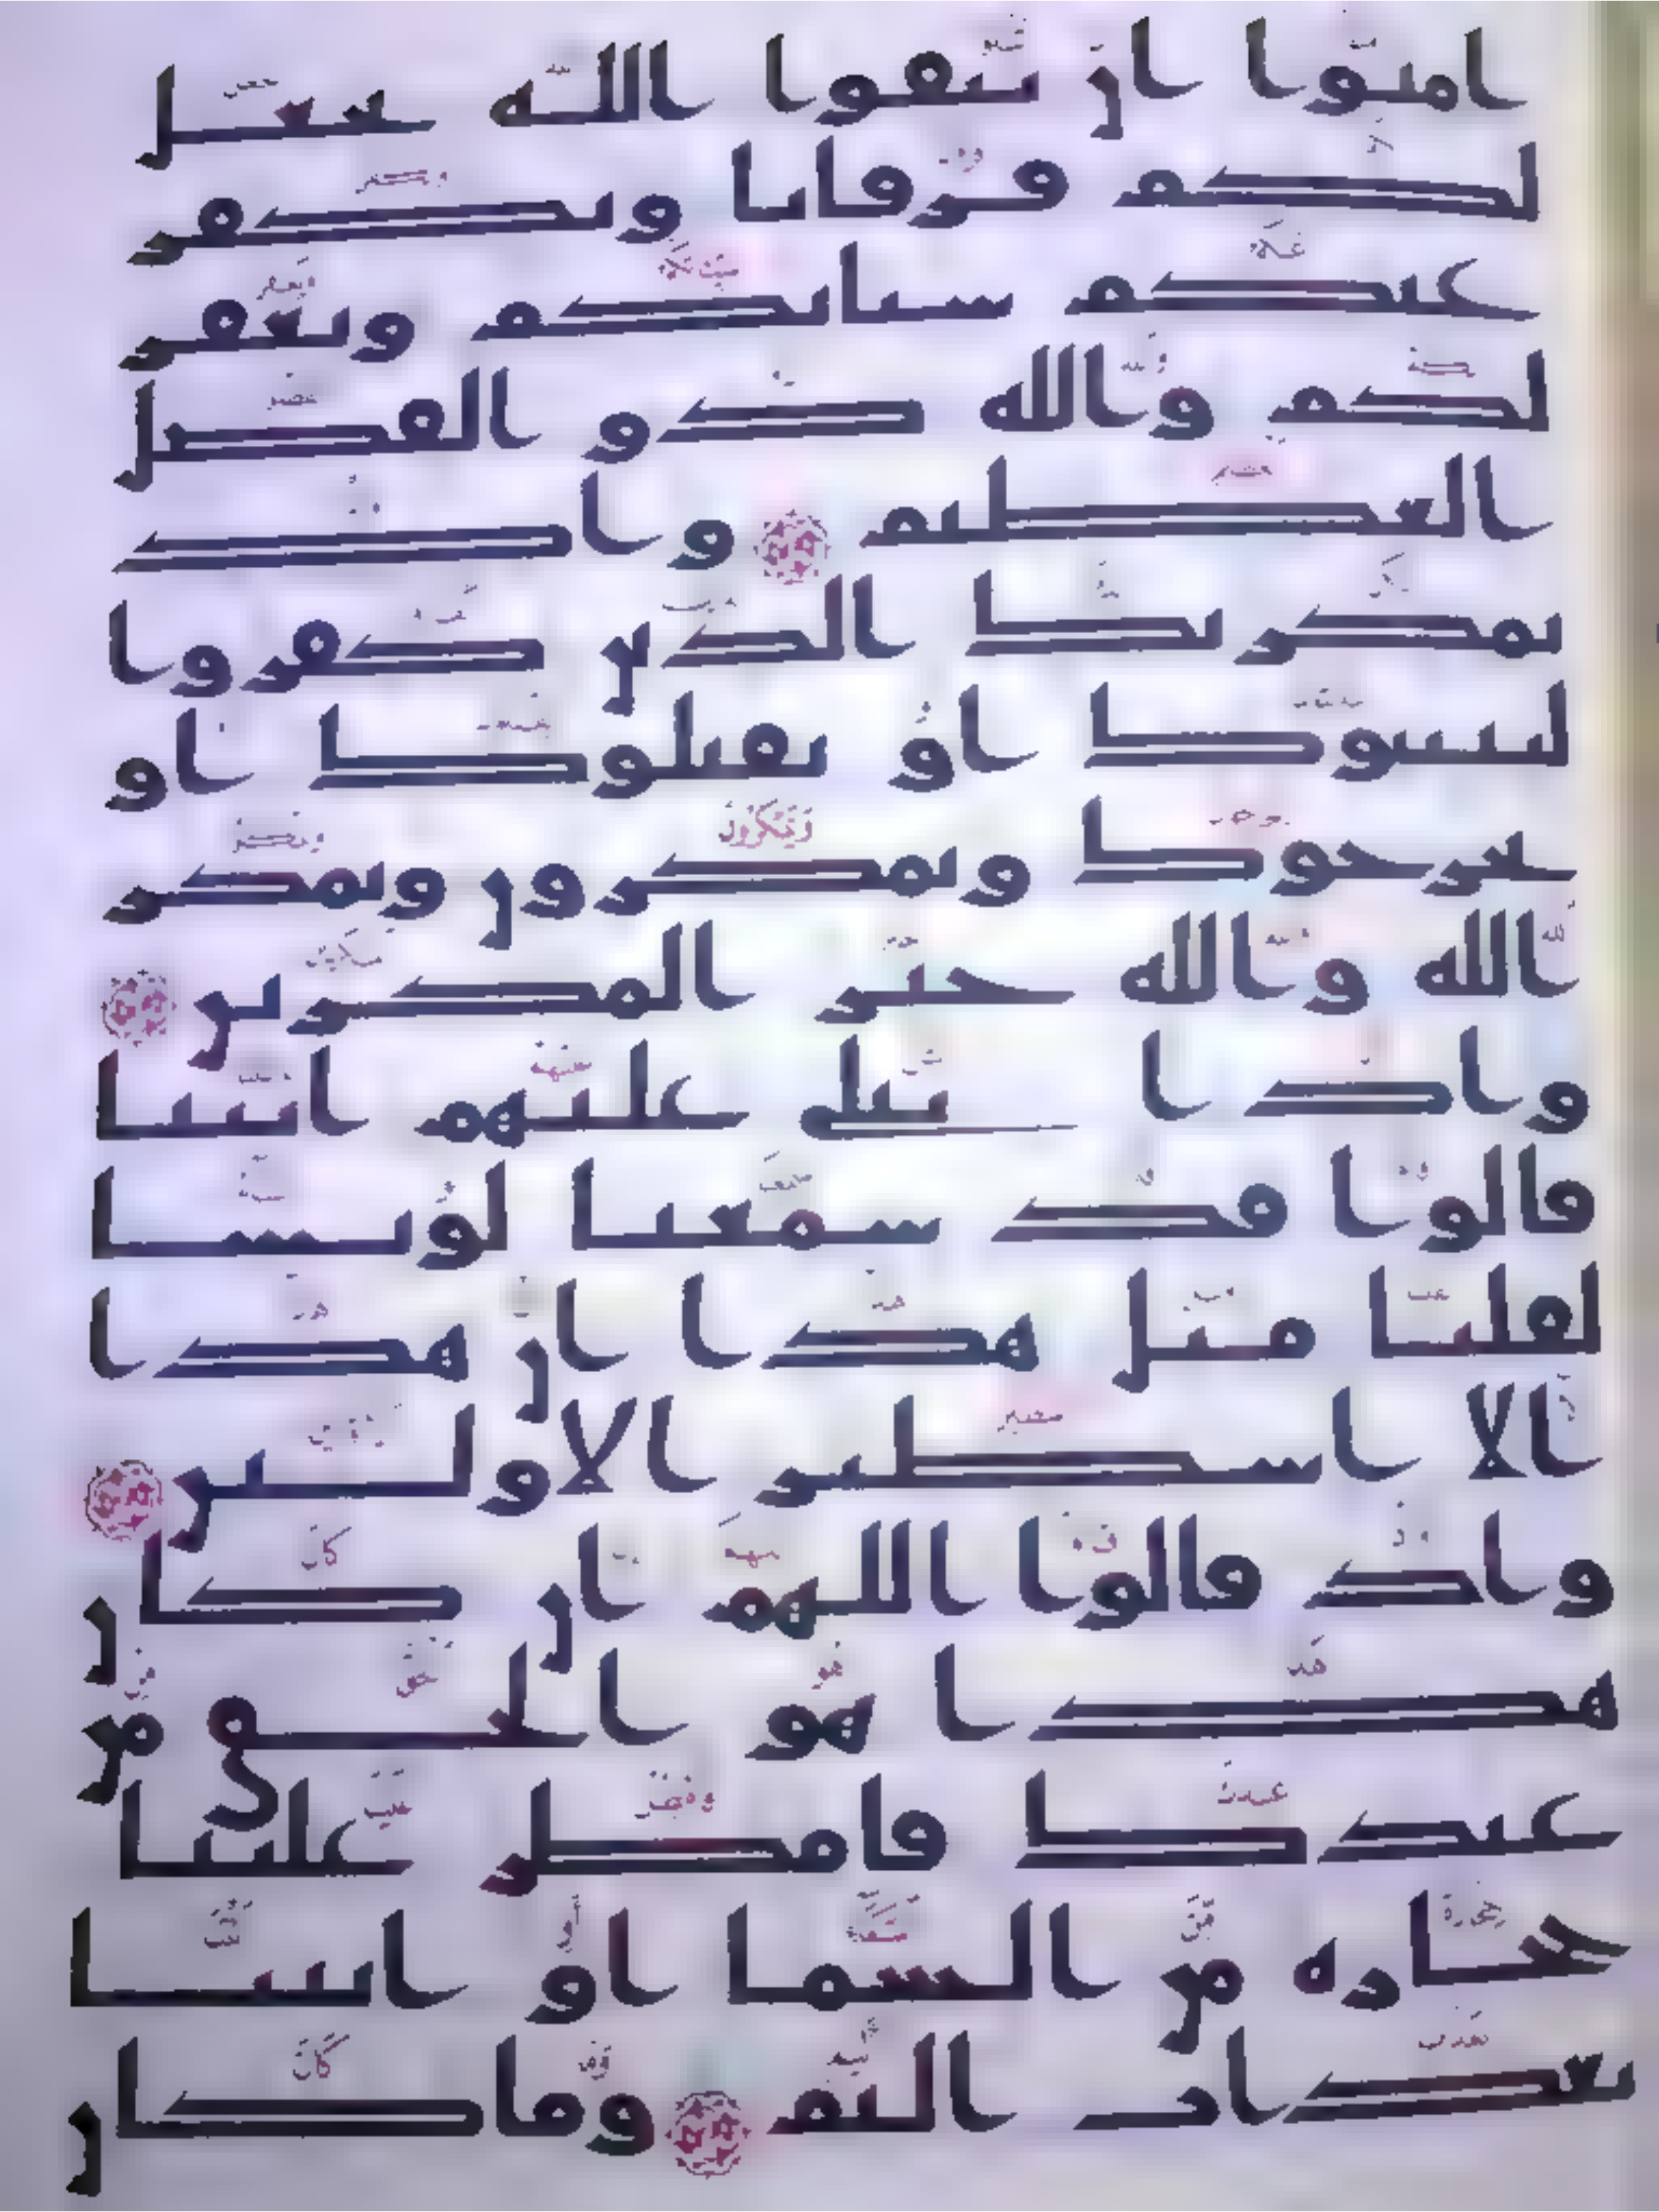 امنوا ان تتقوا الله يجعل
لكم فرقانا ويكفر
عنكم سياتكم ويغفر
لكم والله ذو الفضل
العظيم واذ
يمكر بك الذين كفروا
ليثبتوك او يقتلوك او
يخرجوك ويمكرون ويمكر
الله والله خير المكرين
واذا تتلى عليهم ايتنا
قالوا قد سمعنا لو نشا
لقلنا مثل هذا ان هذا
الا اسطير الاولين
واذ قالوا اللهم ان كان
هذا هو الحق من
عندك فامطر علينا
حجاره من السما او ايتنا
بعذاب اليم وما كان